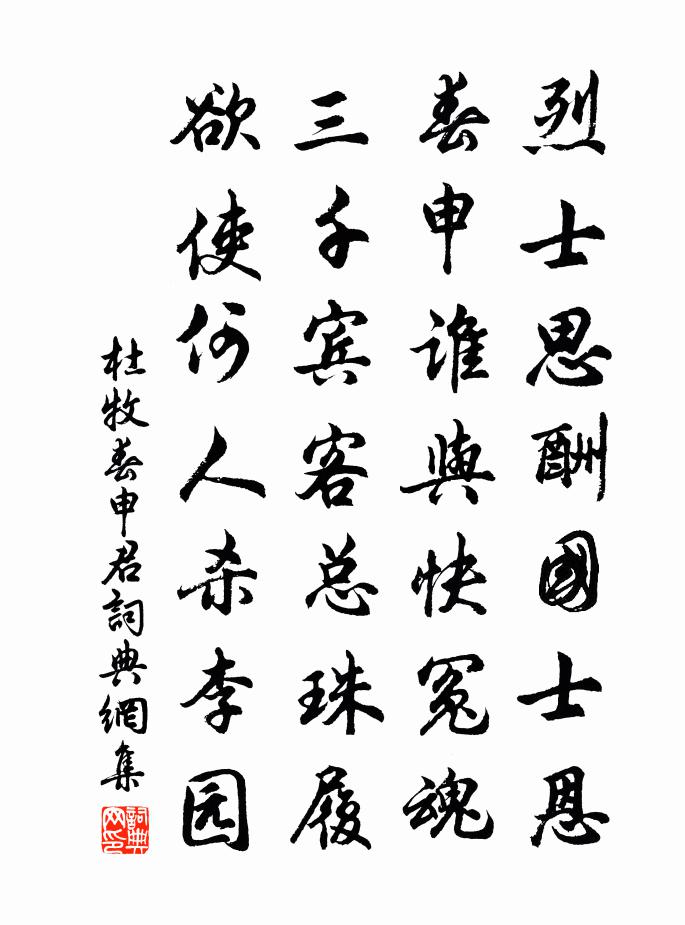 烈士思酬國士恩
春申誰與快冤魂
三千宾客总珠履
欲使何人杀李园
杜牧春申君詞典網集
詞典网印